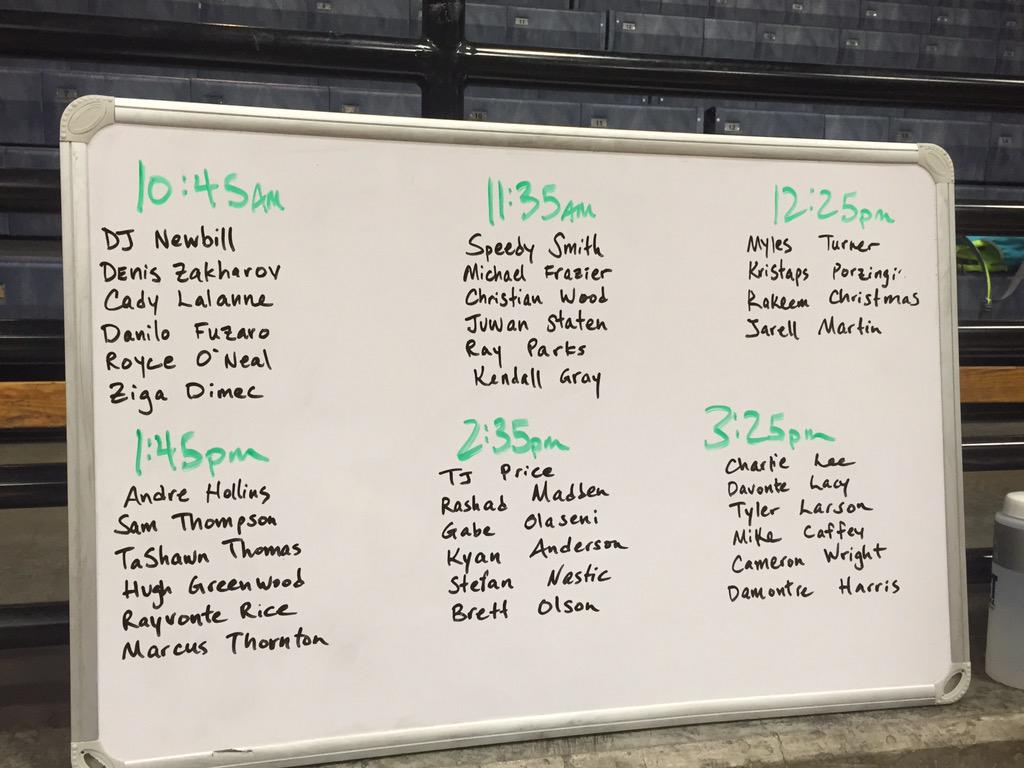 10:45AM
DJ Newbill
Denis Zakharov
Cady Lalanne
Danilo Fuzaro
Royce O'Neal
Ziga Dimec
11:35AM
Speedy Smith
Michael Frazier
Christian Wood
Juwan Staten
Ray Parks
Kendall Gray
12:25pm
Myles Turner
Kristaps Porzingi
Rakeem Christmas
Jarell Martin
1:45pm
Andre Hollins
Sam Thompson
TaShawn Thomas
Hugh Greenwood
Rayvonte Rice
Marcus Thornton
2:35pm
TJ Price
Rashad Madden
Gabe Olaseni
Kyan Anderson
Stefan Nastic
Brett Olson
3:25pm
Charlie Lee
Davonte Lacy
Tyler Larson
Mike Caffey
Cameron Wright
Damontre Harris